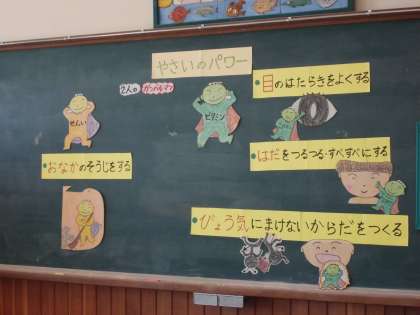 やさいのパワー
2人のガンバルマン
せんい
ビタミン
おなかのそうじをする
目のはたらきをよくする
はだをつるつる・すべすべにする
びょう気にまけないからだをつくる